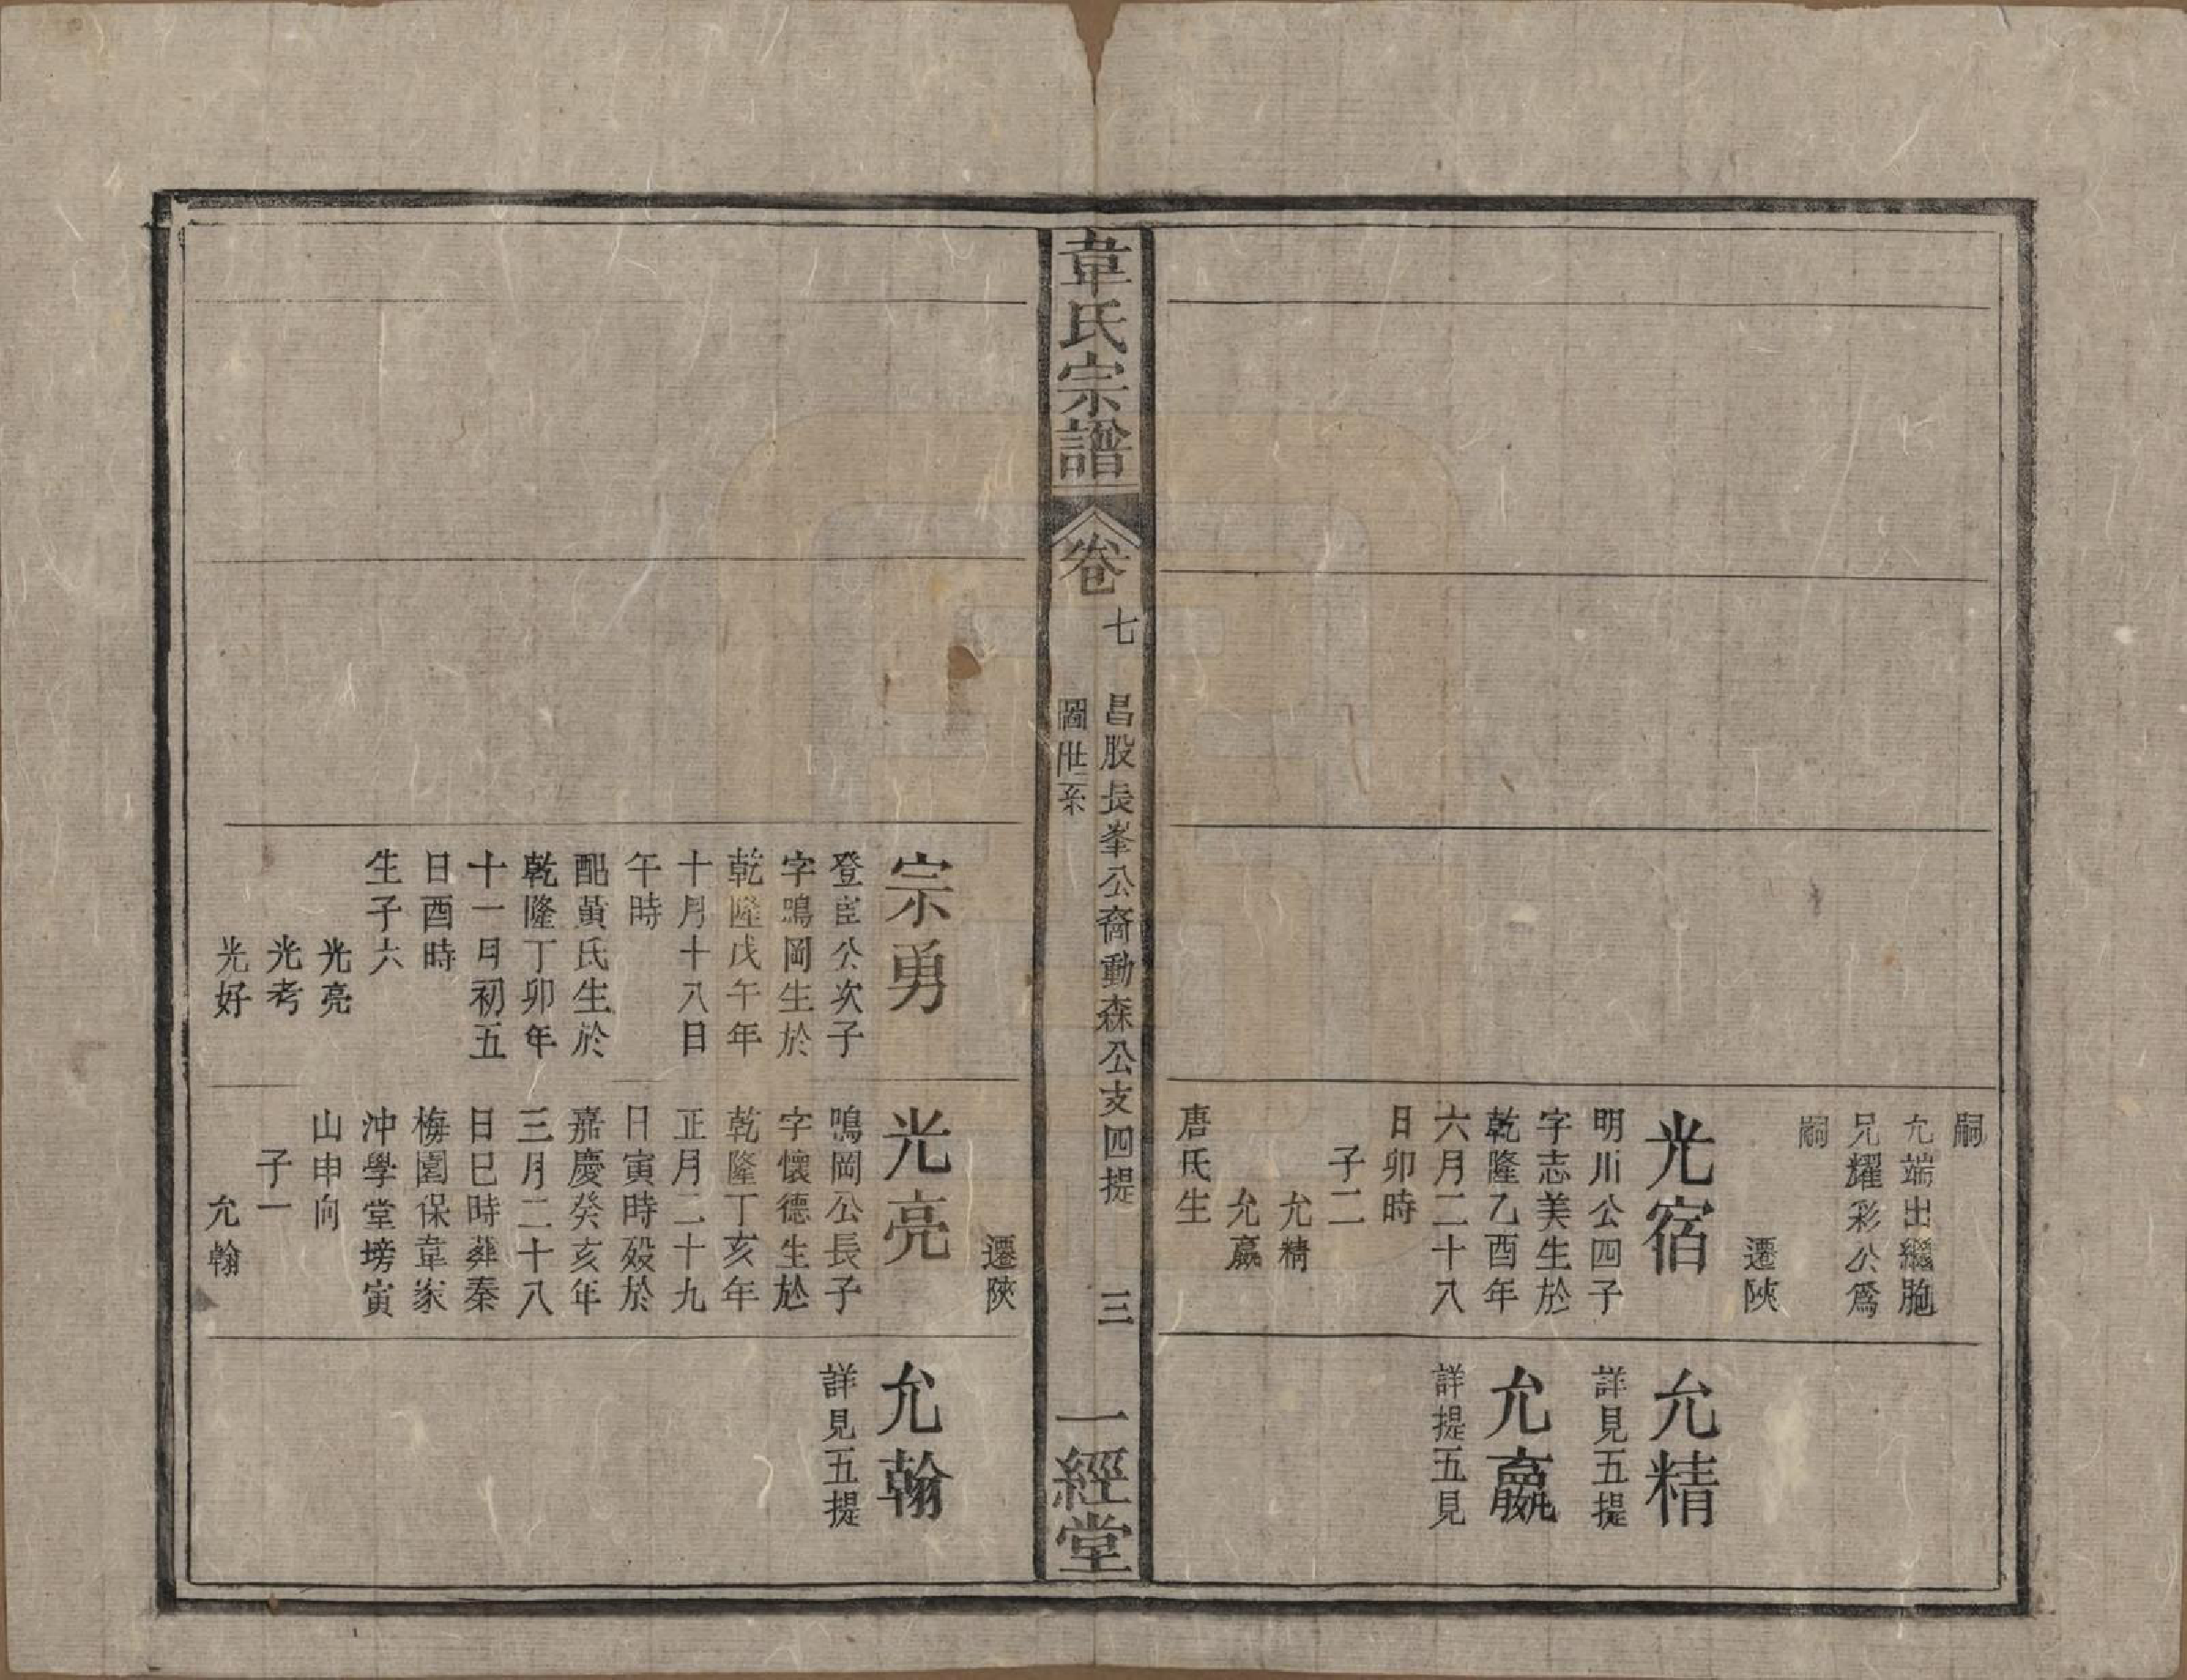 嗣
允端出繼胞
兄耀彩公爲
嗣
遷陝
光宿
明川公四子
字志美生於
乾隆乙酉年
六月二十八
日卯時
子二
允精
允嬴
唐氏生
允精
詳見五提
允嬴
詳提五見
韋氏宗譜
卷七
昌股長峯公裔動森公支四提
世系圖
三
一經堂
宗勇
登臣公次子
字鳴岡生於
乾隆戊午年
十月十八日
午時
配黃氏生於
乾隆丁卯年
十一月初五
日酉時
生子六
光亮
光考
光好
遷陝
光亮
鳴岡公長子
字懷德生於
乾隆丁亥年
正月二十九
日寅時歿於
嘉慶癸亥年
三月二十八
日巳時葬秦
梅園保韋家
沖學堂塝寅
山申向
子一
允翰
允翰
詳見五提